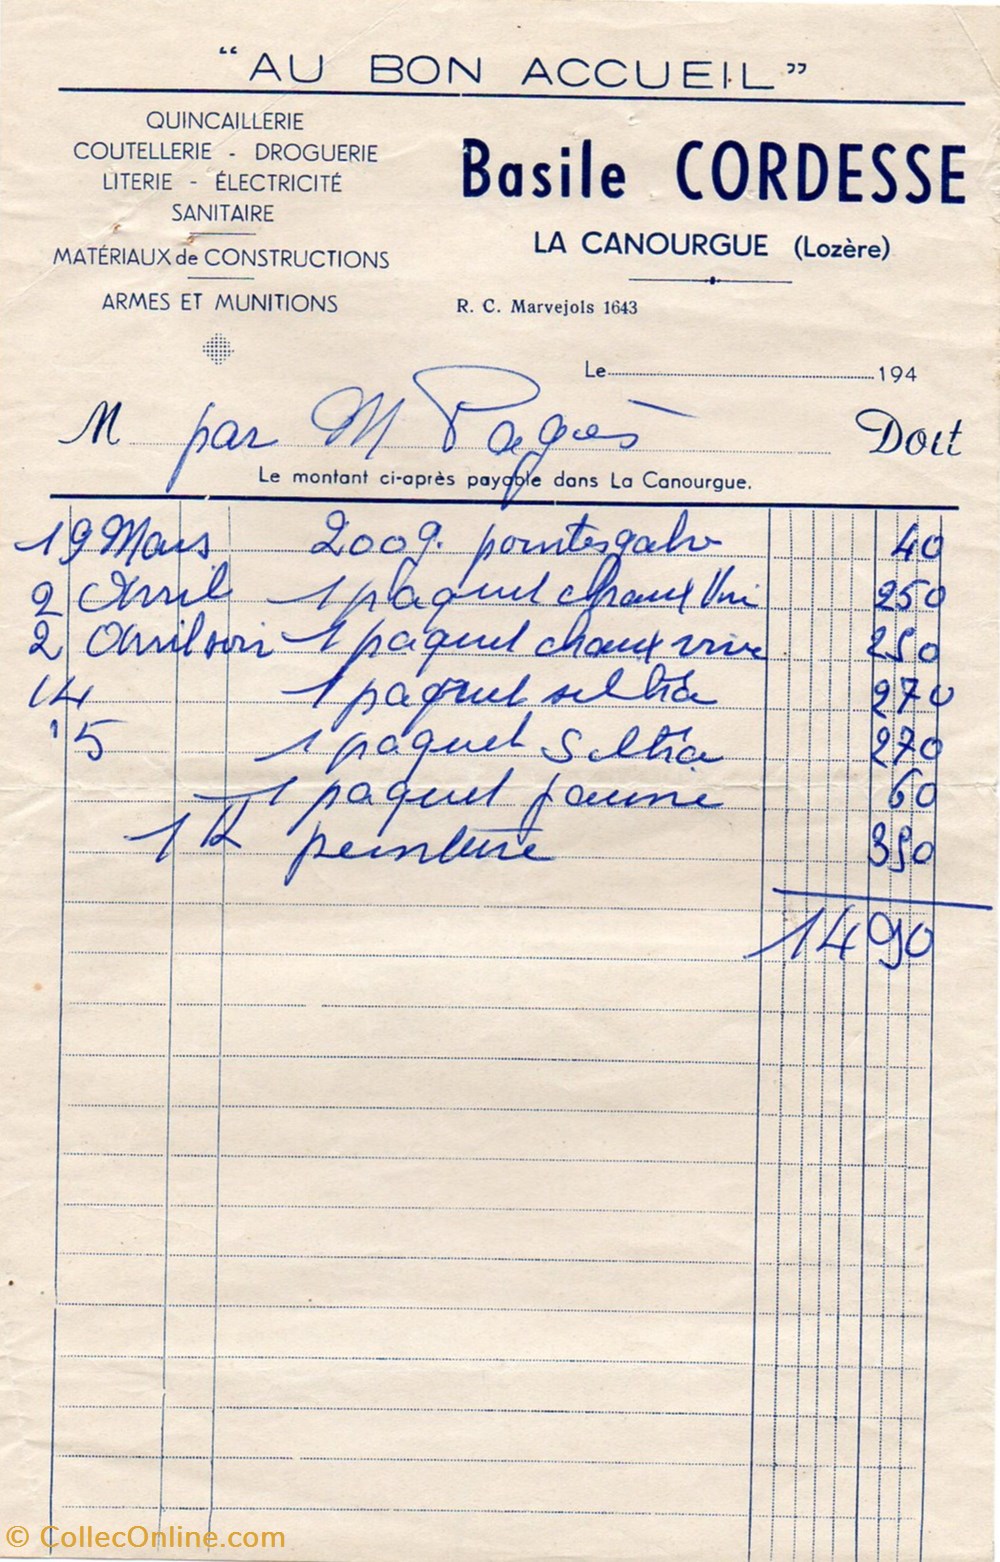 "AU BON ACCUEIL"
QUINCAILLERIE
COUTELLERIE - DROGUERIE
LITERIE - ÉLECTRICITÉ
SANITAIRE
MATÉRIAUX de CONSTRUCTIONS
ARMES ET MUNITIONS
Basile CORDESSE
LA CANOURGUE (Lozère)
R. C. Marvejols 1643
Le 194
M par M Pagès Doit
Le montant ci-après payable dans La Canourgue.
19 Mars 200g. pointes galv 40
2 Avril 1 paquet chaux vive 250
2 Avril soir 1 paquet chaux vive 250
14 1 paquet 270
15 1 paquet 270
1 paquet jaune 60
1 K peinture 350
1490
© CollecOnline.com